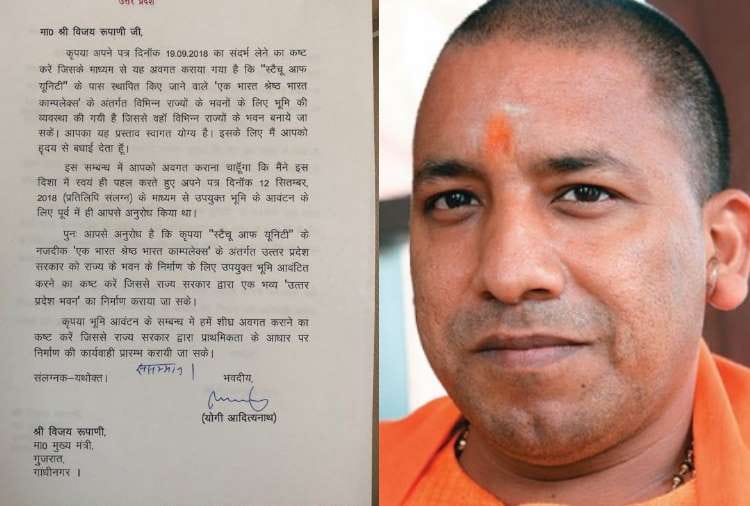 उत्तर प्रदेश
मा0 श्री विजय रूपाणी जी,
कृपया अपने पत्र दिनाँक 19.09.2018 का संदर्भ लेने का कष्ट
करें जिसके माध्यम से यह अवगत कराया गया है कि "स्टैचू आफ
यूनिटी" के पास स्थापित किए जाने वाले 'एक भारत श्रेष्ठ भारत
काम्पलेक्स' के अंतर्गत विभिन्न राज्यों के भवनों के लिए भूमि की
व्यवस्था की गयी है जिससे वहाँ विभिन्न राज्यों के भवन बनाये जा
सकें। आपका यह प्रस्ताव स्वागत योग्य है। इसके लिए मैं आपको
हृदय से बधाई देता हूँ।
इस सम्बन्ध में आपको अवगत कराना चाहूँगा कि मैंने इस
दिशा में स्वयं ही पहल करते हुए अपने पत्र दिनाँक 12 सितम्बर,
2018 (प्रतिलिपि संलग्न) के माध्यम से उपयुक्त भूमि के आवंटन के
लिए पूर्व में ही आपसे अनुरोध किया था।
पुनः आपसे अनुरोध है कि कृपया "स्टैचू आफ यूनिटी" के
नजदीक 'एक भारत श्रेष्ठ भारत काम्पलेक्स' के अंतर्गत उत्तर प्रदेश
सरकार को राज्य के भवन के निर्माण के लिए उपयुक्त भूमि आवंटित
करने का कष्ट करें जिससे राज्य सरकार द्वारा एक भव्य 'उत्तर
प्रदेश भवन' का निर्माण कराया जा सके।
कृपया भूमि आवंटन के सम्बन्ध में हमें शीघ्र अवगत कराने का
कष्ट करें जिससे राज्य सरकार द्वारा प्राथमिकता के आधार पर
निर्माण की कार्यवाही प्रारम्भ करायी जा सके।
ससम्मान।
संलग्नक-यथोक्त। भवदीय,
(योगी आदित्यनाथ)
श्री विजय रूपाणी,
मा0 मुख्य मंत्री,
गुजरात,
गाधीनगर ।